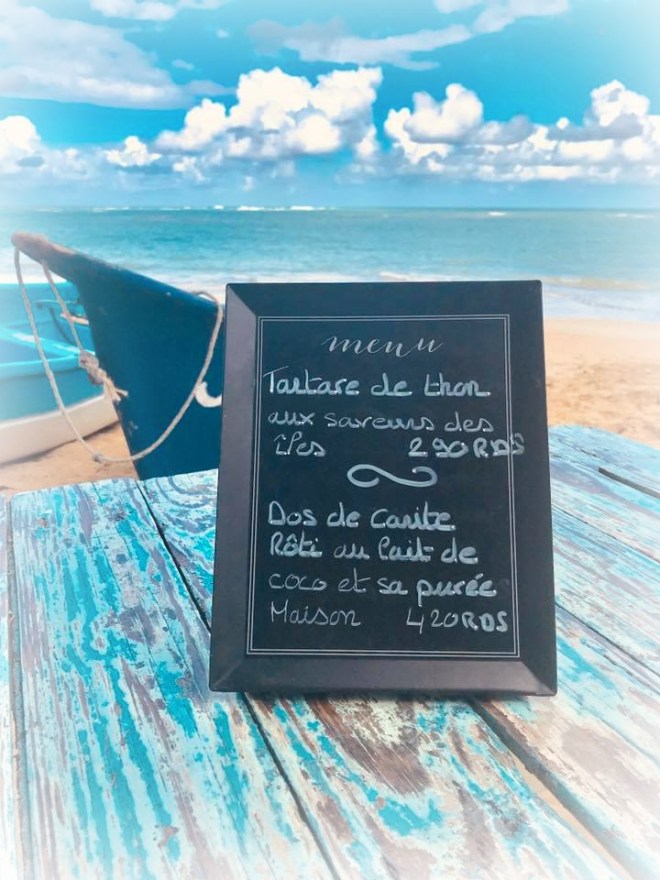 menu
Tartare de thon
aux saveurs des
îles 290RDS
Dos de Carite
Rôti au lait de
coco et sa purée
Maison 420RDS